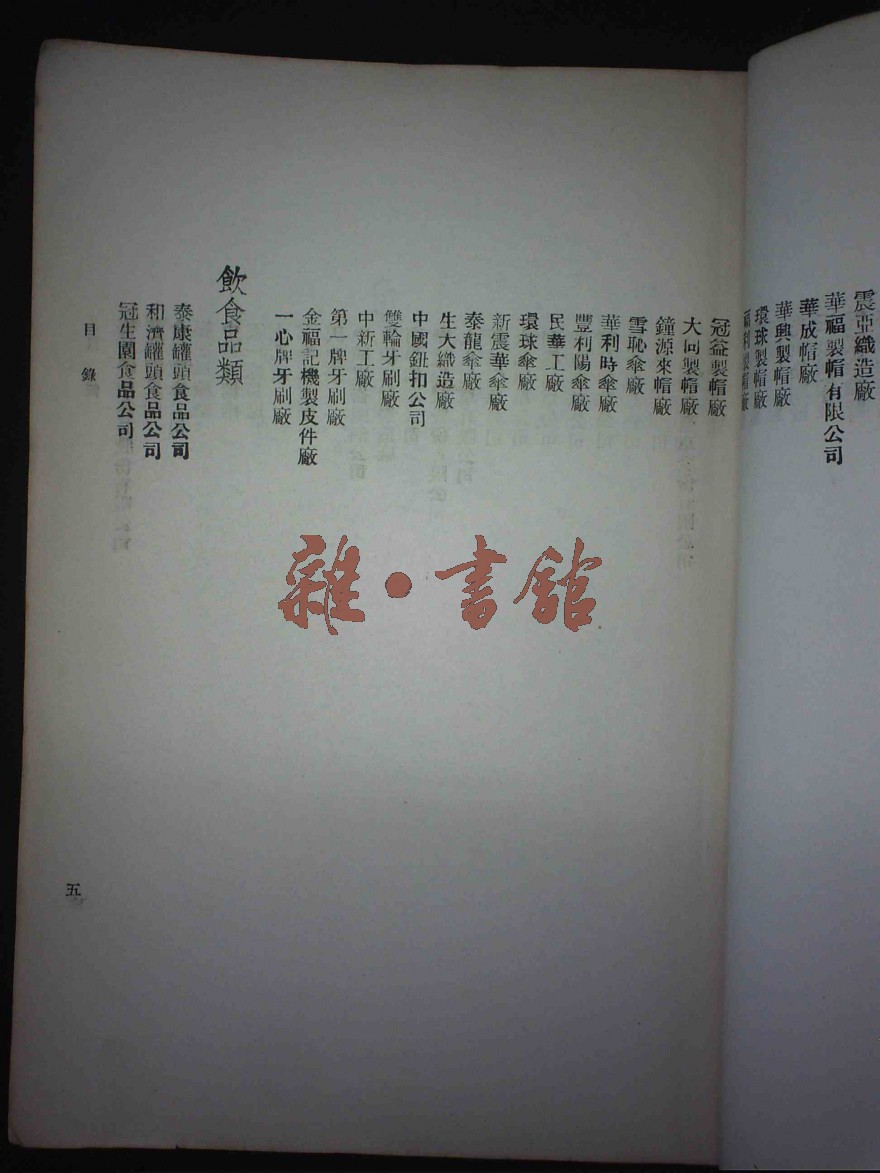 震亞織造廠
華福製帽有限公司
華成帽廠
華興製帽廠
環球製帽廠
福利製帽廠
冠益製帽廠
大同製帽廠
鐘源來帽廠
雪恥傘廠
華利時傘廠
豐利陽傘廠
民華工廠
環球傘廠
新震華傘廠
泰龍傘廠
生大織造廠
中國鈕扣公司
雙輪牙刷廠
中新工廠
第一牌牙刷廠
金福記機製皮件廠
一心牌牙刷廠
飲食品類
泰康罐頭食品公司
和濟罐頭食品公司
冠生園食品公司
目錄
五
雜·書館